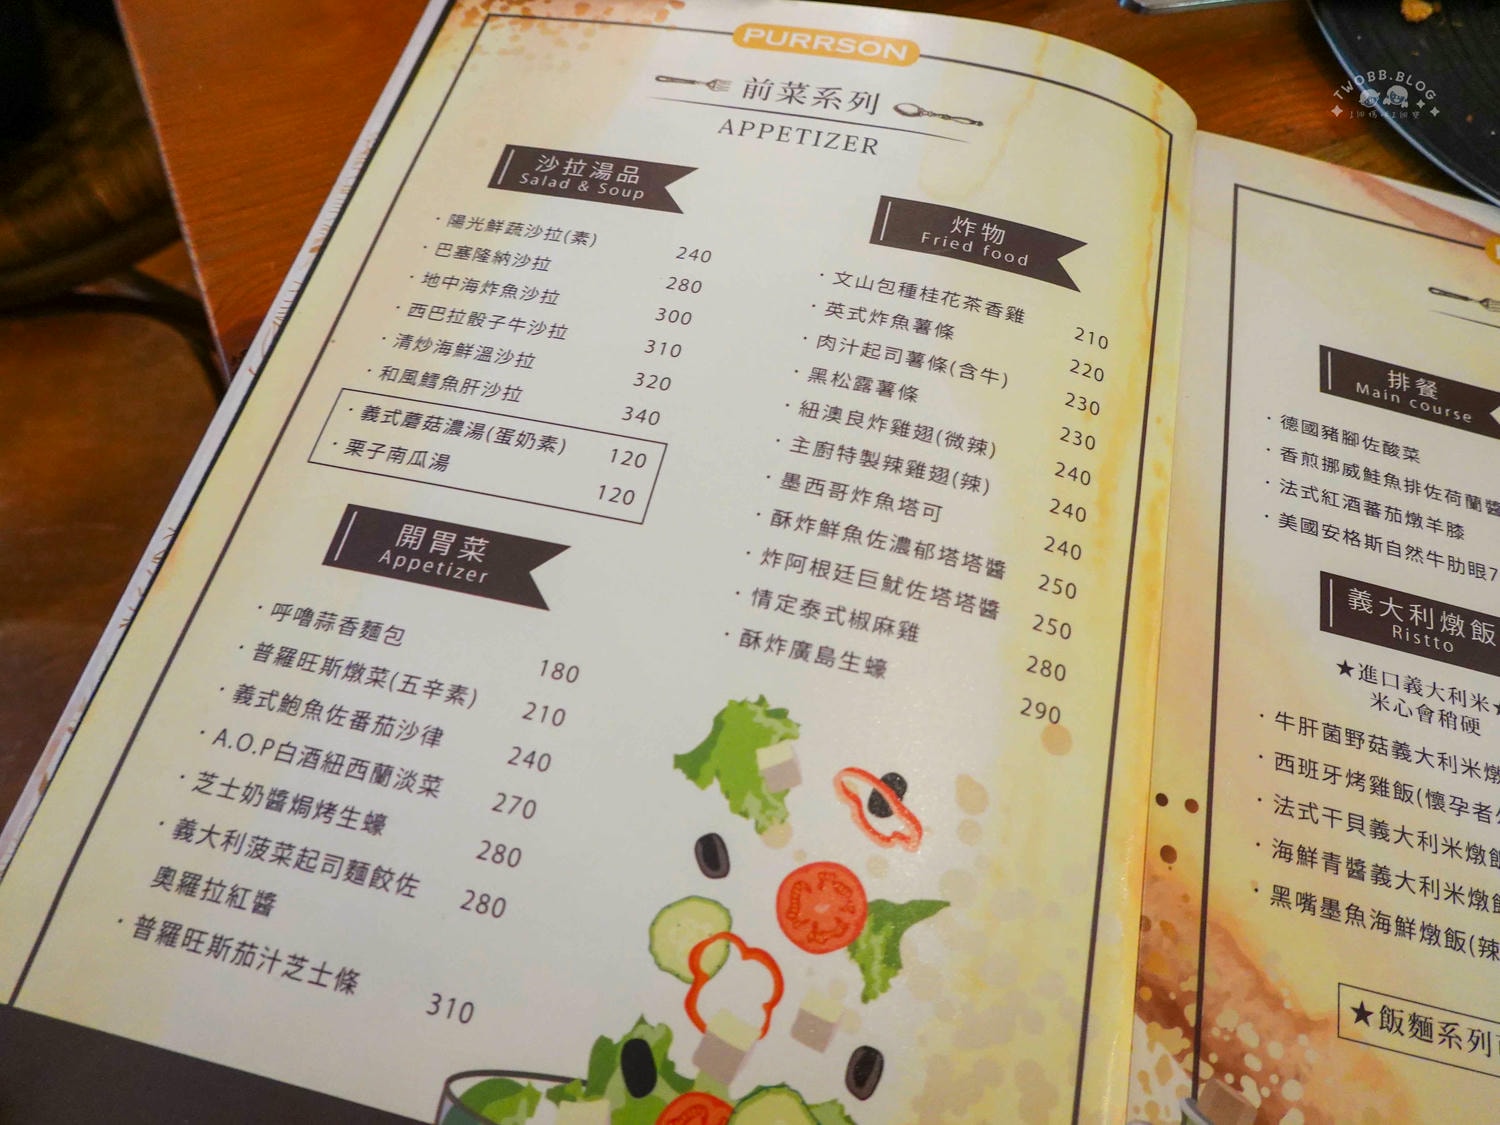 PURRSON
前菜系列
APPETIZER
沙拉湯品
Salad & Soup
·陽光鮮蔬沙拉(素) 240
·巴塞隆納沙拉 280
·地中海炸魚沙拉 300
·西巴拉骰子牛沙拉 310
·清炒海鮮溫沙拉 320
·和風鱈魚肝沙拉 340
·義式蘑菇濃湯(蛋奶素) 120
·栗子南瓜湯 120
開胃菜
Appetizer
·呼嚕蒜香麵包 180
·普羅旺斯燉菜(五辛素) 210
·義式鮑魚佐番茄沙律 240
·A.O.P白酒紐西蘭淡菜 270
·芝士奶醬焗烤生蠔 280
·義大利菠菜起司麵餃佐 280
奧羅拉紅醬
·普羅旺斯茄汁芝士條 310
炸物
Fried food
·文山包種桂花茶香雞 210
·英式炸魚薯條 220
·肉汁起司薯條(含牛) 230
·黑松露薯條 230
·紐澳良炸雞翅(微辣) 240
·主廚特製辣雞翅(辣) 240
·墨西哥炸魚塔可 240
·酥炸鮮魚佐濃郁塔塔醬 250
·炸阿根廷巨魷佐塔塔醬 250
·情定泰式椒麻雞 280
·酥炸廣島生蠔 290
排餐
Main course
·德國豬腳佐酸菜
·香煎挪威鮭魚排佐荷蘭醬
·法式紅酒蕃茄燉羊膝
·美國安格斯自然牛肋眼7
義大利燉飯
Ristto
★進口義大利米★
米心會稍硬
·牛肝菌野菇義大利米燉
·西班牙烤雞飯(懷孕者
·法式干貝義大利米燉飯
·海鮮青醬義大利米燉飯
·黑嘴墨魚海鮮燉飯(辣
★飯麵系列
TWOBB.BLOG